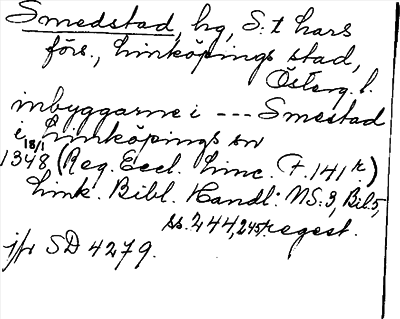 Smedstad, hg, S:t Lars
förs., Linköpings stad,
Österg. l.
inbyggarne i --- Smestad
i Linköpings sn
18/1
1348 (Reg. Eccl. Linc. F. 141 r)
Link. Bibl. Handl. NS:3, Bil.5,
ss. 244, 245, regest.
jfr SD 4279.